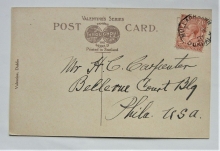 VALENTINE'S SERIES
POST CARD.
Printed in Scotland
Mr H. C. Carpenter
Bellevue Court Bldg
Phila. USA.